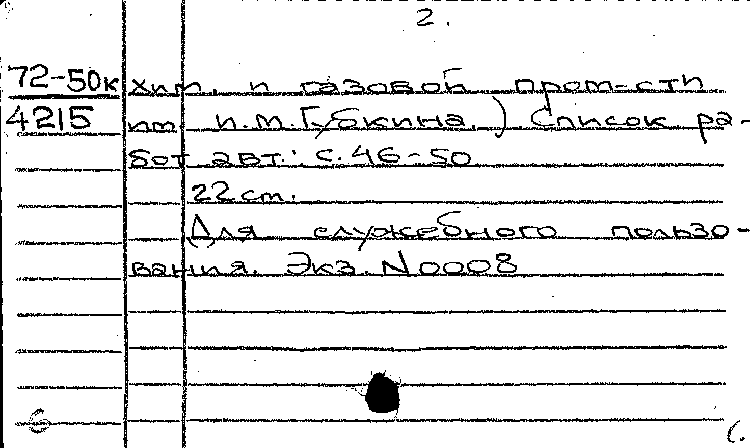 2.
72-50к хим. и газовой пром-сти
4215 им. И.М.Губкина.) Список ра-
бот авт.: с. 46-50
22 ст.
Для служебного пользо-
вания. Экз. N0008